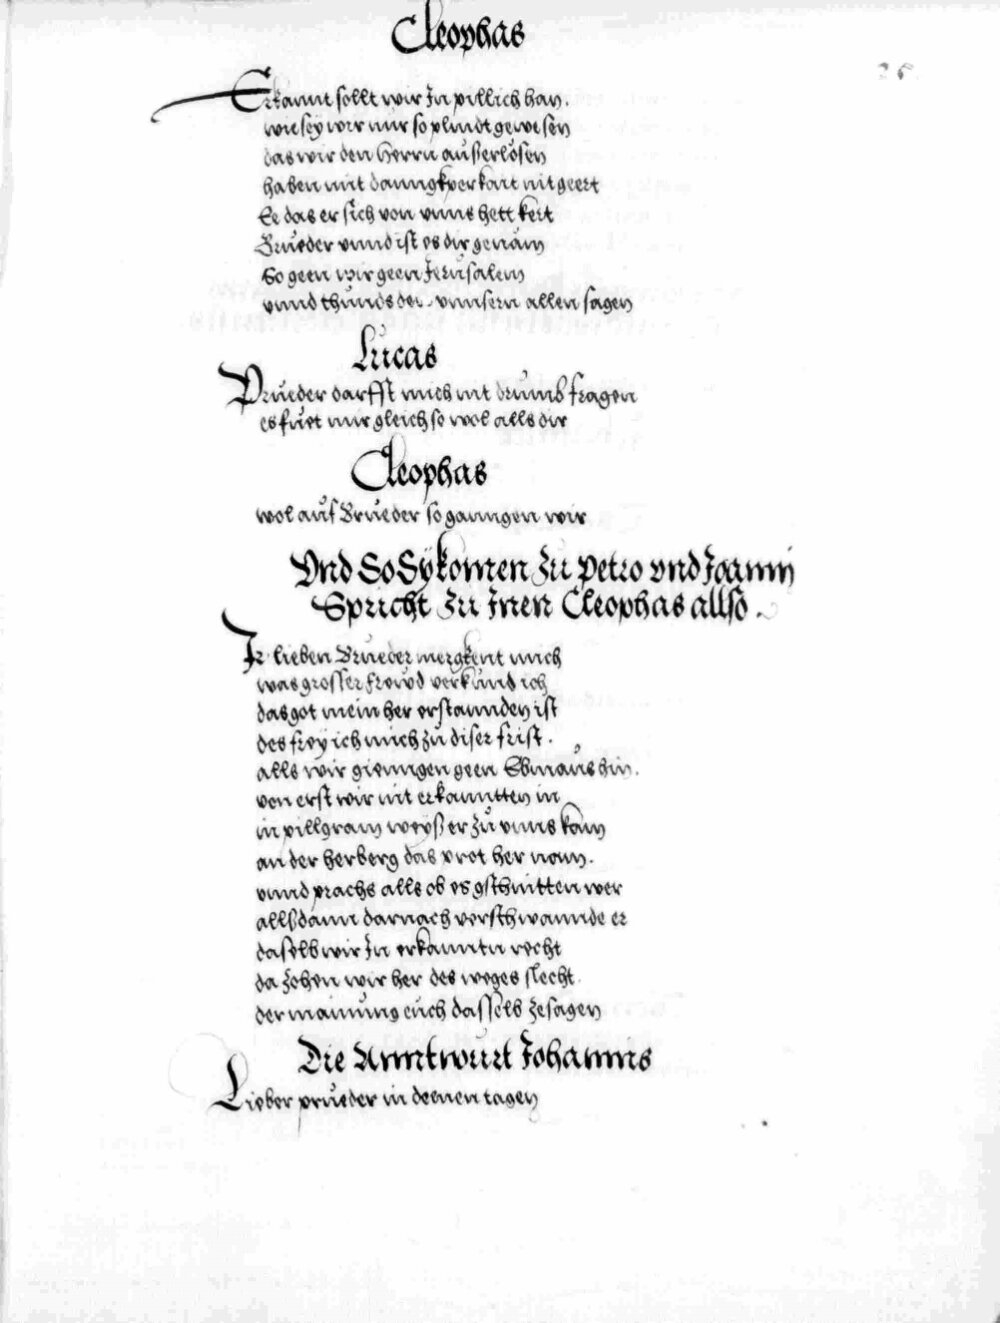 Cleophas
26.
Erkannt sollt wir In pillich han.
wie sey wir nur so plindt gewesen
das wir den herrn außerlösen
haben mit danngkperkait nit geert
Ee das er sich von unns hett kert
Brueder unnd ist es dir genäm
So geen wir geen Jerusalem
unnd thunds den unnsern allen sagen
Lucas
Prueder darffst mich nit drumb fragen
es fuet mir gleich so wol alls dir
Cleophas
wol auf Brueder so ganngen wir
Und So Sÿ komen Zu petro vnd Joanni
Spricht Zu Inen Cleophas allso.
Ir lieben Brueder mergkent mich
was grosser frewd verkünd ich
das got mein her erstannden ist
des frey ich mich zu diser frist.
alls wir gienngen geen Ebmaus hin.
von erst wir nit erkanntten in
in pillgram weyß er zu unns kam
an der herberg das prot her nam.
unnd prachs alls ob es gschnitten wer
allsdann darnach verschwannde er
daselb wir In erkanntn recht
da zohen wir her des weges slecht.
der mainung euch dasselb zesagen
Die Anntwurt Johannis
Lieber prueder in deenen tagen